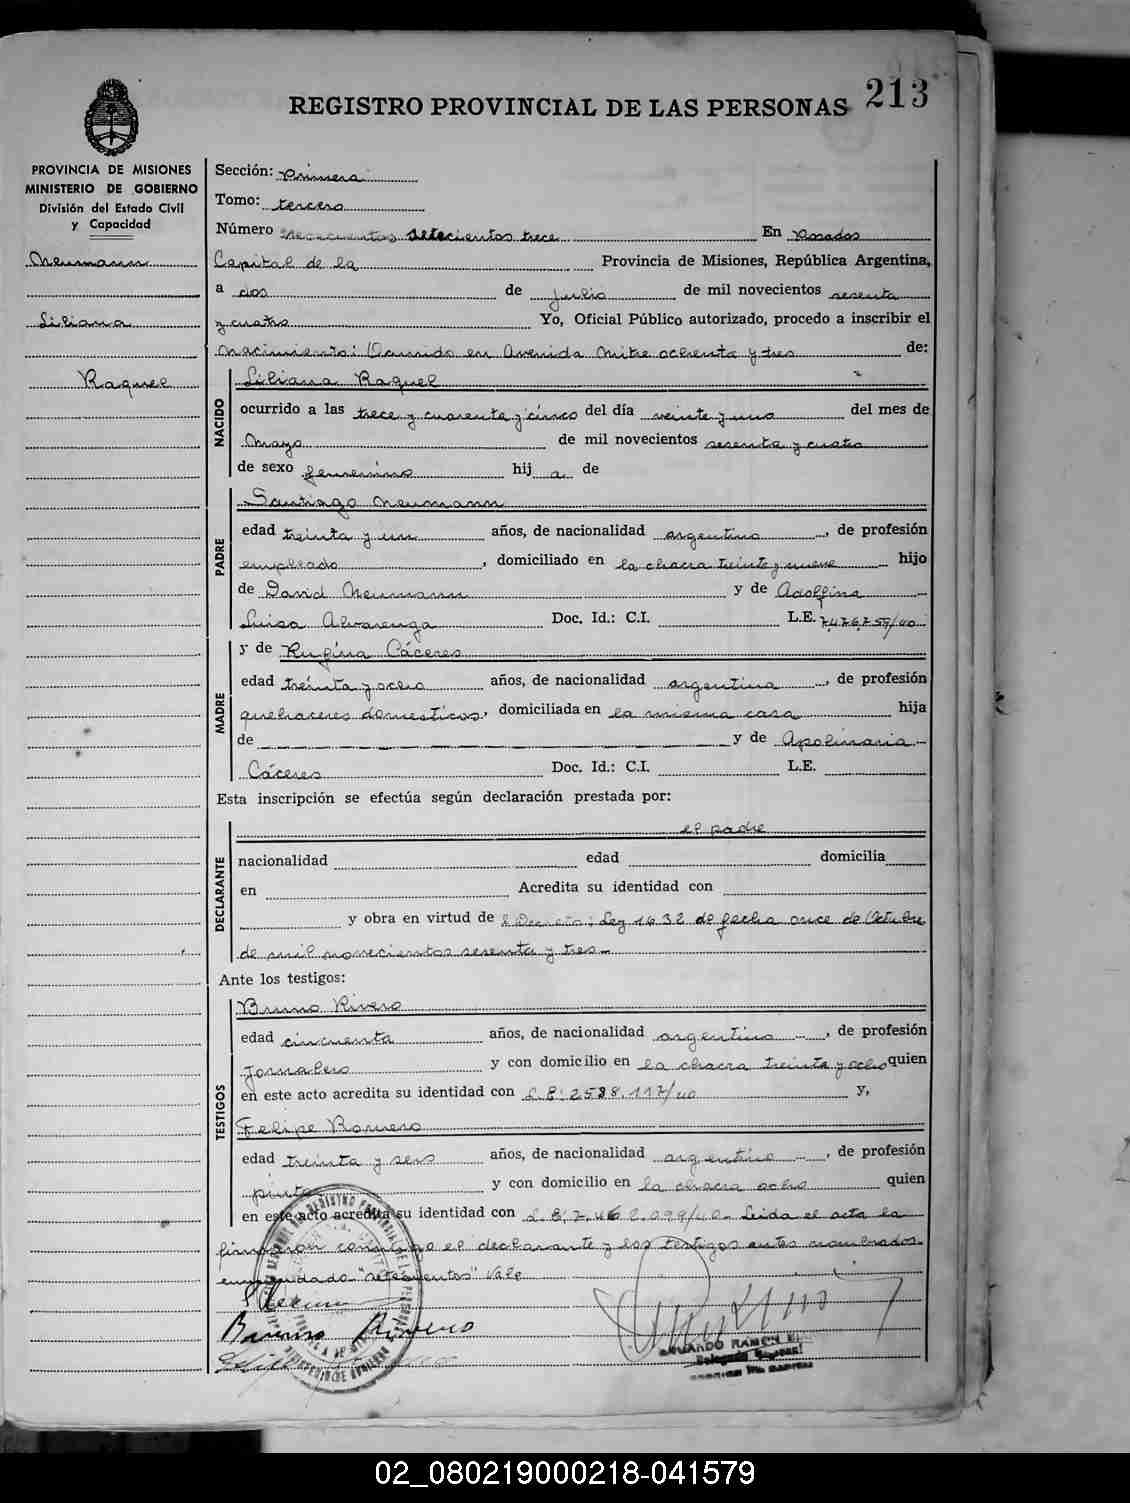 213
REGISTRO PROVINCIAL DE LAS PERSONAS
PROVINCIA DE MISIONES
MINISTERIO DE GOBIERNO
División del Estado Civil
y Capacidad
Neumann
Liliana
Raquel
Sección: Primera
Tomo: tercero
Número setecientos trece En Posadas
Capital de la Provincia de Misiones, República Argentina,
a dos de Julio de mil novecientos sesenta
y cuatro Yo, Oficial Público autorizado, procedo a inscribir el
nacimiento: Ocurrido en Avenida Mitre ochenta y tres de:
NACIDO
Liliana Raquel
ocurrido a las trece y cuarenta y cinco del día veinte y uno del mes de
Mayo de mil novecientos sesenta y cuatro
de sexo femenino hij a de
PADRE
Santiago Neumann
edad treinta y un años, de nacionalidad argentino, de profesión
empleado, domiciliado en la chacra treinta y nueve hijo
de David Neumann y de Adolfina
Luisa Alvarenga Doc. Id.: C.I. L.E. 7.476.759/40
MADRE
y de Rufina Cáceres
edad treinta y ocho años, de nacionalidad argentina, de profesión
quehaceres domesticos, domiciliada en la misma casa hija
de y de Apolinaria
Cáceres Doc. Id.: C.I. L.E.
Esta inscripción se efectúa según declaración prestada por:
DECLARANTE
el padre
nacionalidad edad domicilia
en Acredita su identidad con
y obra en virtud de Decreto; Ley 1632 de fecha once de Octubre
de mil novecientos sesenta y tres
Ante los testigos:
TESTIGOS
Bruno Rivero
edad cincuenta años, de nacionalidad argentino, de profesión
Jornalero y con domicilio en la chacra treinta y ocho quien
en este acto acredita su identidad con L.E: 2588.117/40 y,
Felipe Romero
edad treinta y seis años, de nacionalidad argentino, de profesión
pintor y con domicilio en la chacra ocho quien
en este acto acredita su identidad con L.E; 7.462.099/40 Leida el acta la
firmaron conmigo el declarante y los testigos antes nombrados
enmendado "setecientos" Vale
Bruno Rivero
02_080219000218-041579